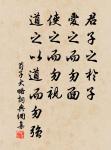 君子之於子
愛之而勿面
使之而勿貌
道之以道而勿強
荀子大略詞典網集